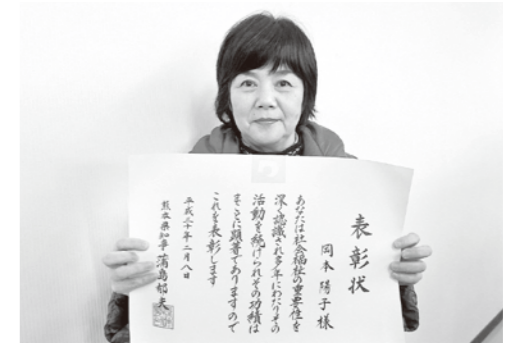 表彰状
岡本陽子様
あなたは社会福祉の重要性を
深く認識され多年にわたりその
活動を続けられその功績は
まことに顕著でありますので
これを表彰します
平成三十年二月八日
熊本県知事 蒲島郁夫